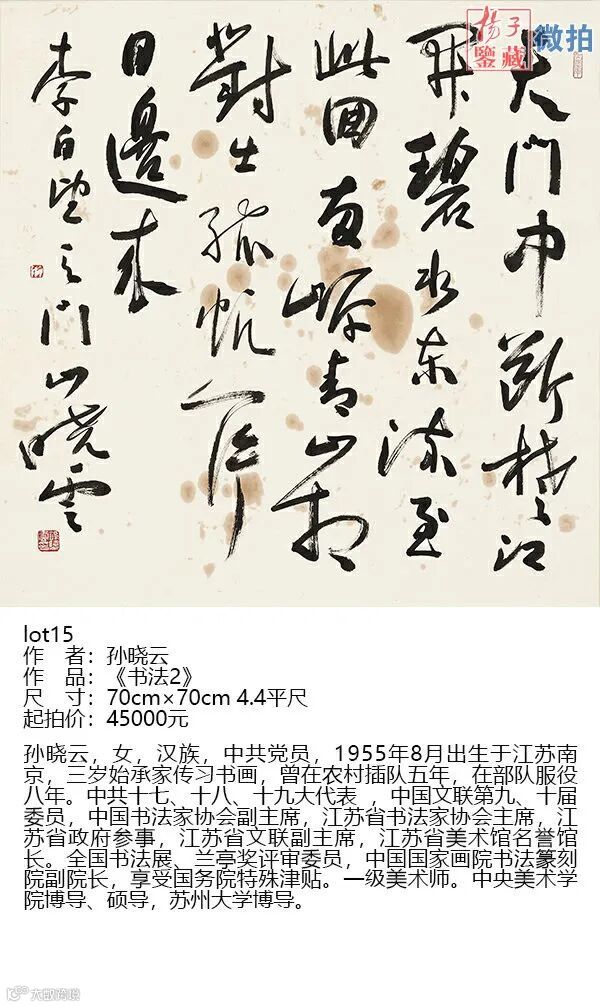 揚子
鑒藏
微拍
天门中断楚江
开碧水东流至
此回两岸青山相
對出孤帆一片
日邊来
李白望天门山 晓雲
lot15
作　者：孙晓云
作　品：《书法2》
尺　寸：70cm×70cm 4.4平尺
起拍价：45000元
孙晓云，女，汉族，中共党员，1955年8月出生于江苏南
京，三岁始承家传习书画，曾在农村插队五年，在部队服役
八年。中共十七、十八、十九大代表 ，中国文联第九、十届
委员，中国书法家协会副主席，江苏省书法家协会主席，江
苏省政府参事，江苏省文联副主席，江苏省美术馆名誉馆
长。全国书法展、兰亭奖评审委员，中国国家画院书法篆刻
院副院长，享受国务院特殊津贴。一级美术师。中央美术学
院博导、硕导，苏州大学博导。
大数跨境